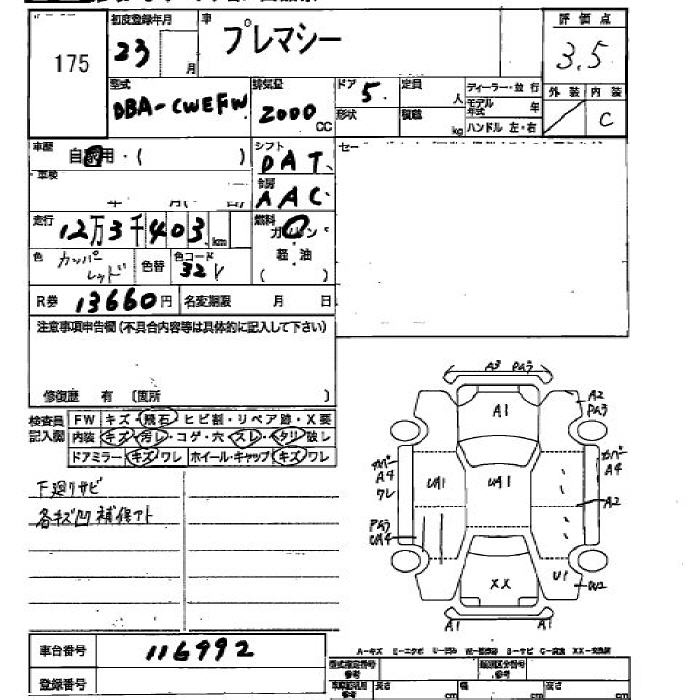 175
初度登録年月
車
プレマシー
評価点
23
月
3.5
型式
排気量
ドア 5
定員
人
ディーラー・並行
外装
内装
DBA-CWEFW
2000
CC
形状
積載
kg
モデル年式
年
ハンドル 左・右
C
車歴
自家用・(
)
シフト
DAT
車検
年
月(
・
日)
AAC
走行
12万3千403
km
燃料
ガソリン
軽・油
(
)
色
カッパーレッド
色替
色コード
32V
R券
13660円
名変期限
月
日
注意事項申告欄(不具合内容等は具体的に記入して下さい)
修復歴 有 〔箇所
〕
検査員
記入欄
FW
キズ・飛石・ヒビ割・リペア跡・X要
内装
キズ・汚レ・コゲ・穴・スレ・タリ破し
ドアミラー
キズ・ワレ
ホイール・キャップ
キズ・ワレ
下廻リサビ
各キズ凹 補修アト
A3 PA3
A2
PA3
A1
カバー
A4
ワレ
UA1
UA1
カバー
A4
A2
PA3
UA4
XX
U1
A1
A1
A-キズ
XX-交換済
車台番号
116992
登録番号
型式指定番号
参考
類別区分番号
参考
参考
長さ
cm
幅
cm
高さ
cm